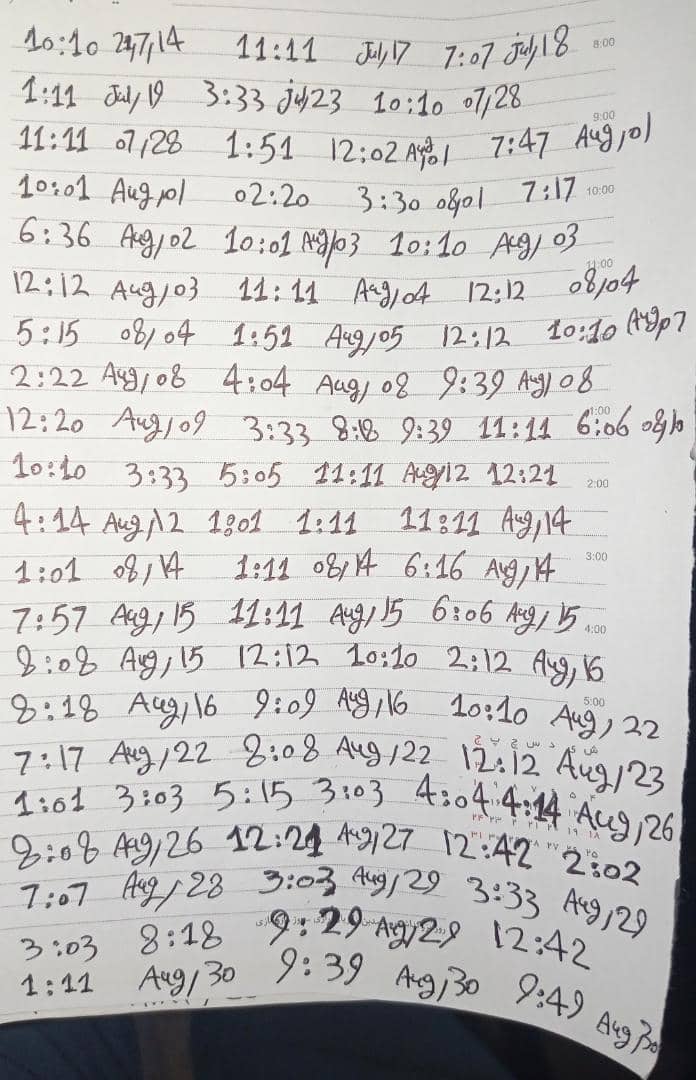 10:10 247,14 11:11 July,17 7:07 July,18 8:00
1:11 July,19 3:33 july23 10:10 07,28
9:00
11:11 07,28 1:51 12:02 Aug,01 7:47 Aug,01
10:01 Aug,01 02:20 3:30 08,01 7:17 10:00
6:36 Aug,02 10:01 Aug,03 10:10 Aug, 03
11:00
12:12 Aug,03 11:11 Aug,04 12:12 08,04
5:15 08,04 1:51 Aug,05 12:12 10:10 Aug,07
2:22 Aug,08 4:04 Aug, 08 9:39 Aug, 08
1:00
12:20 Aug,09 3:33 8:18 9:39 11:11 6:06 08,10
10:10 3:33 5:05 11:11 Aug,12 12:21 2:00
4:14 Aug,12 1:01 1:11 11:11 Aug,14
1:01 08,14 1:11 08,14 6:16 Aug,14 3:00
7:57 Aug,15 11:11 Aug,15 6:06 Aug,15 4:00
8:08 Aug,15 12:12 10:10 2:12 Aug,16
5:00
8:18 Aug,16 9:09 Aug,16 10:10 Aug, 22
7:17 Aug,22 8:08 Aug,22 12:12 Aug,23
1:01 3:03 5:15 3:03 4:04 4:14 Aug,26
8:08 Aug,26 12:21 Aug,27 12:42 2:02
7:07 Aug,28 3:03 Aug,29 3:33 Aug,29
3:03 8:18 9:29 Aug,29 12:42
1:11 Aug,30 9:39 Aug,30 9:49 Aug 30